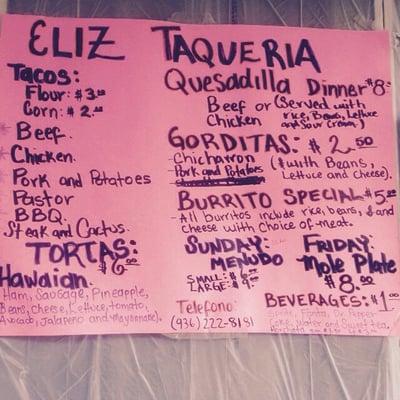 ELIZ TAQUERIA
Tacos:
Flour: $3.00
Corn: $2.00
Beef.
Chicken.
Pork and Potatoes
Pastor
BBQ.
Steak and Cactus.
TORTAS:
$6.00
Hawaian.
Ham, Sausage, Pineapple,
Beans, Cheese, Lettuce, tomato,
Avocado, Jalapeno and Mayonnaise).
Quesadilla Dinner $8.
Beef or (Served with
Chicken rice, Beans, Lettuce
and Sour Cream)
GORDITAS: $2.50
Chicharron (with Beans,
Pork and Potatoes Lettuce and Cheese).
BURRITO SPECIAL $5.00
All burritos include rice, beans, and
cheese with choice of meat.
SUNDAY:
MENUDO
SMALL: $6.
LARGE: $9.
FRIDAY:
Mole Plate
$8.00
Telefono:
(936) 222-8181
BEVERAGES: $1.00
Sprite, Fanta, Dr. Pepper
Coke, Water and Sweet tea.